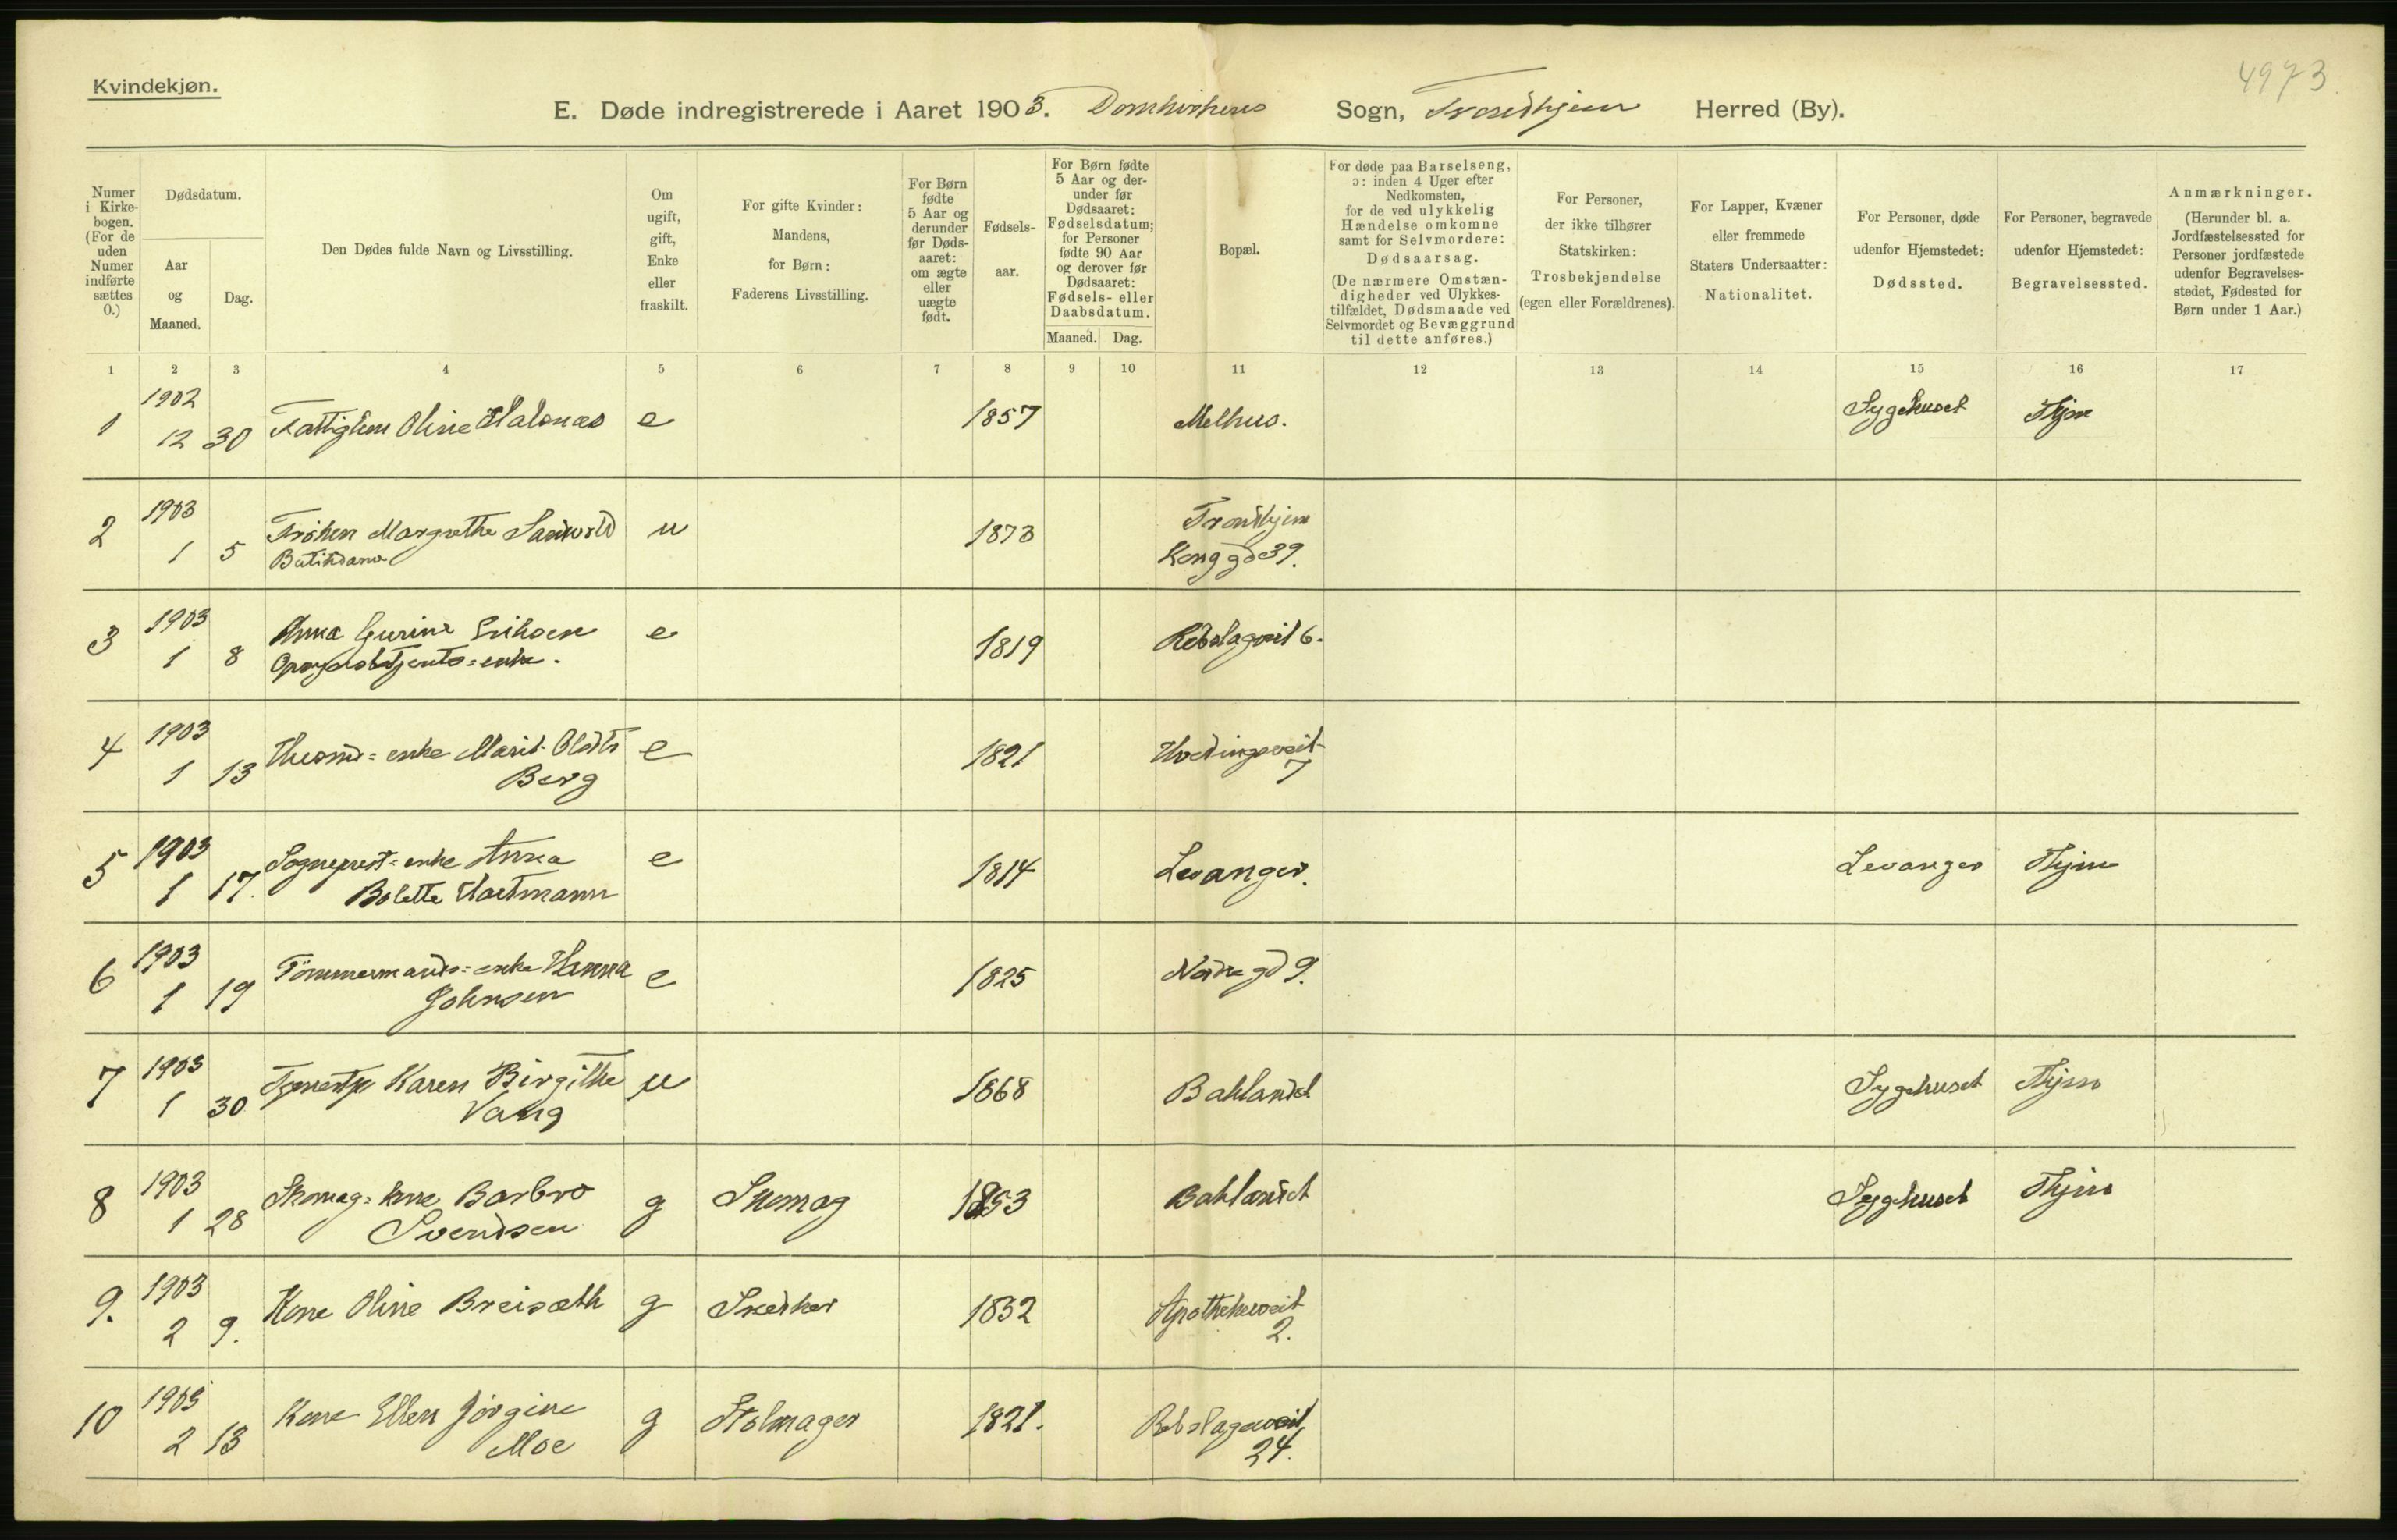 Kvindekjøn.
4973
E. Døde indregistrerede i Aaret 1903. Domkirkens Sogn, Trondhjem Herred (By).
Numer i Kirke-bogen. (For de uden Numer indførte sættes 0.)
Dødsdatum.
Aar og Maaned.
Dag.
Den Dødes fulde Navn og Livsstilling.
Om ugift, gift, Enke eller fraskilt.
For gifte Kvinder: Mandens, for Børn: Faderens Livsstilling.
For Børn fødte 5 Aar og derunder før Døds-aaret: om ægte eller uægte født.
Fødsels-aar.
For Børn fødte 5 Aar og der-under før Dødsaaret: Fødselsdatum; for Personer fødte 90 Aar og derover før Dødsaaret: Fødsels- eller Daabsdatum.
Maaned. Dag.
Bopæl.
For døde paa Barselseng, ɔ: inden 4 Uger efter Nedkomsten, for de ved ulykkelig Hændelse omkomne samt for Selvmordere: Dødsaarsag. (De nærmere Omstæn-digheder ved Ulykkes-tilfældet, Dødsmaade ved Selvmordet og Bevæggrund til dette anføres.)
For Personer, der ikke tilhører Statskirken: Trosbekjendelse (egen eller Forældrenes).
For Lapper, Kvæner eller fremmede Staters Undersaatter: Nationalitet.
For Personer, døde udenfor Hjemstedet: Dødssted.
For Personer, begravede udenfor Hjemstedet: Begravelsessted.
Anmærkninger. (Herunder bl. a. Jordfæstelsessted for Personer jordfæstede udenfor Begravelses-stedet, Fødested for Børn under 1 Aar.)
1 2 3 4 5 6 7 8 9 10 11 12 13 14 15 16 17
1 1902 12 30 Fattiglem Oline Halsnæs e 1857 Melhus. Sygehuset Thjem
2 1903 1 5 Frøken Margrethe Sandvold u 1873 Trondhjem
Butikdame Kongg d 39.
3 1903 1 8 Anna Gurine Eriksen e 1819 Rebslagveit 6.
enke.
4 1903 1 13 Husmd=enke Marit Oldts e 1821
Berg 7
5 1903 1 17. Sogneprest=enke Anna e 1814 Levanger. Levanger Thjem
Bolette Hartmann
6 1903 1 19 Tömmermands=enke Hanna e 1825 Nordre gd 9.
Johnsen
7 1903 1 30 Tjenestp Karen Birgitte u 1868 Baklandet Sygehuset Thjem
Vang
8 1903 1 28 Skomag=kone Barbro g Skomag 1853 Baklandet Sygehuset Thjem
Svendsen
9. 1903 2 9. Kone Oline Breisæth g Snedker 1832 Apothekerveit
2.
10 1903 2 13 Kone Ellen Jörgine g Stolmager 1821. Rebslagerveit
Moe 24.